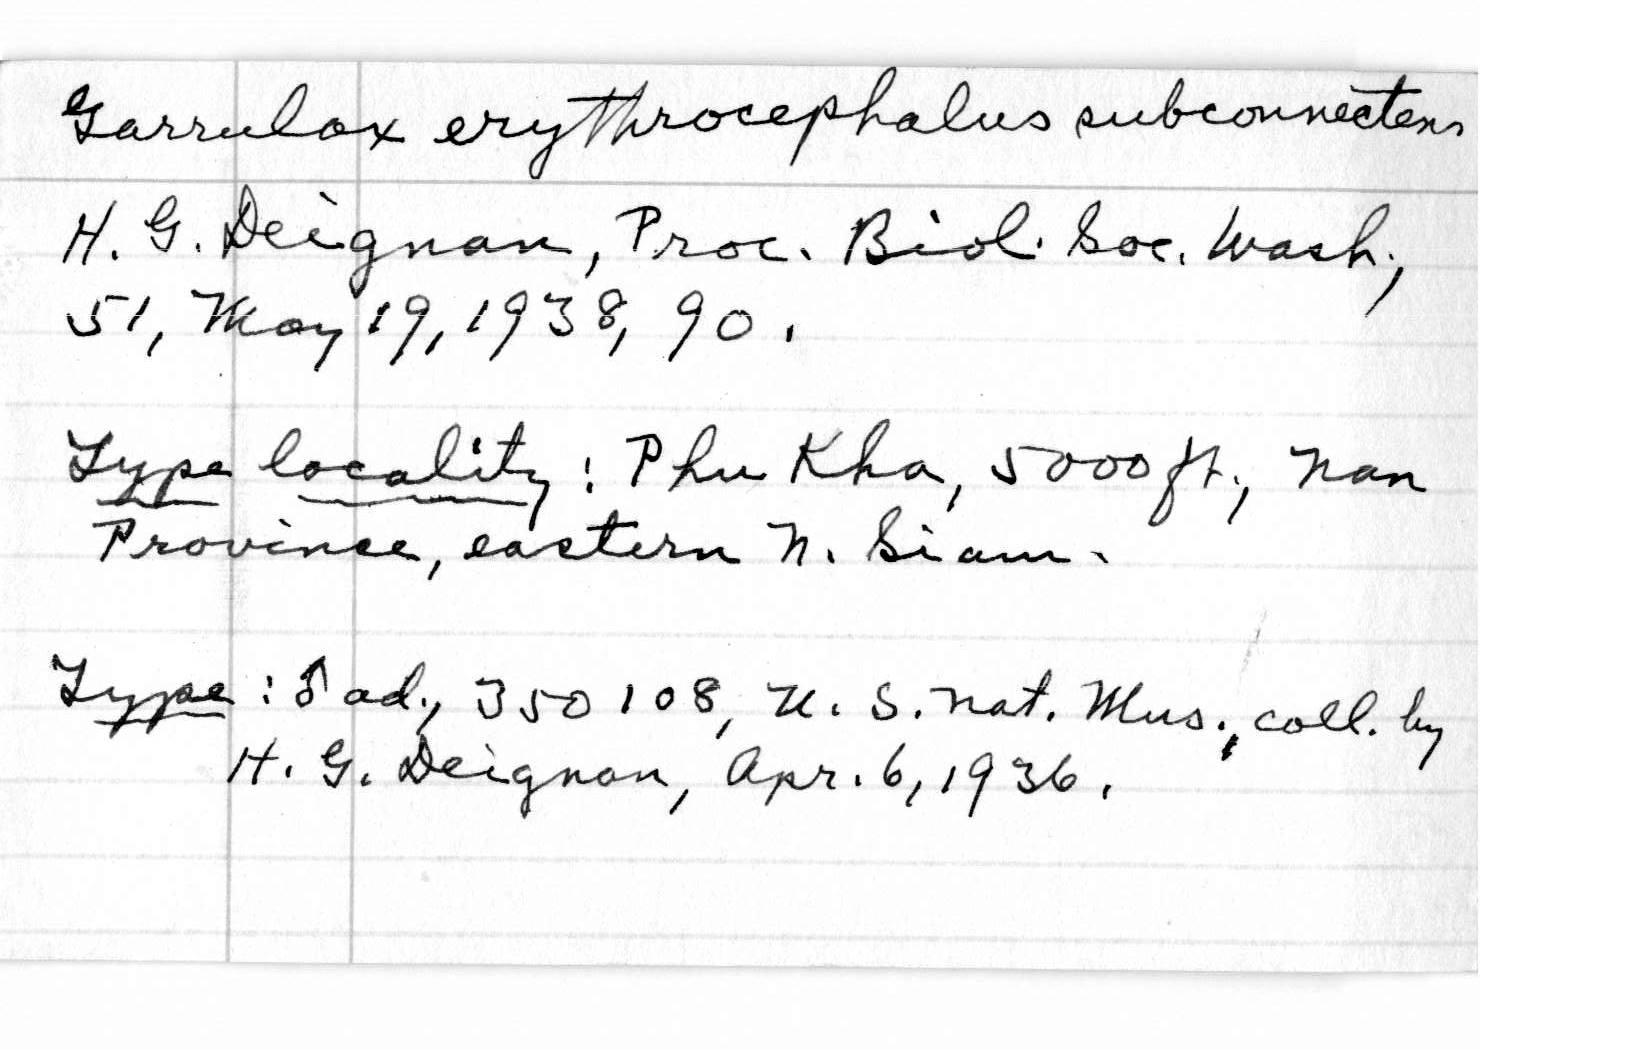 Garrulax erythrocephalus subconnectens
H. G. Deignan, Proc. Biol. Soc. Wash.,
51, May 19, 1938, 90.
Type locality: Phu Kha, 5000 ft., Nan
Province, eastern N. Siam.
Type: ♂ ad., 350108, U. S. Nat. Mus., coll. by
H. G. Deignan, Apr. 6, 1936.